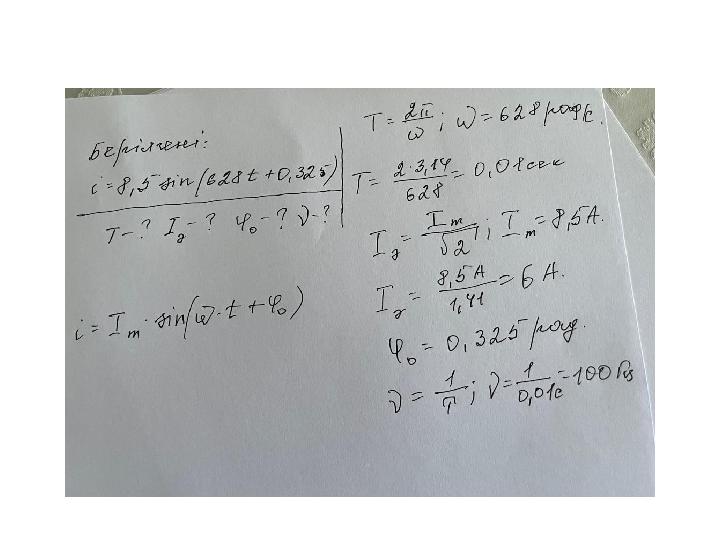 Берілгені:
i = 8,5 sin(628t + 0,325)
T-? I_д-? φ₀-? ν-?
i = I_m · sin(ω · t + φ₀)
T = 2π/ω ; ω = 628 рад/с.
T = 2·3,14/628 = 0,01 сек
I_д = I_m/√2 ; I_m = 8,5 А.
I_д = 8,5 А/1,41 = 6 А.
φ₀ = 0,325 рад.
ν = 1/T ; ν = 1/0,01с = 100 Гц